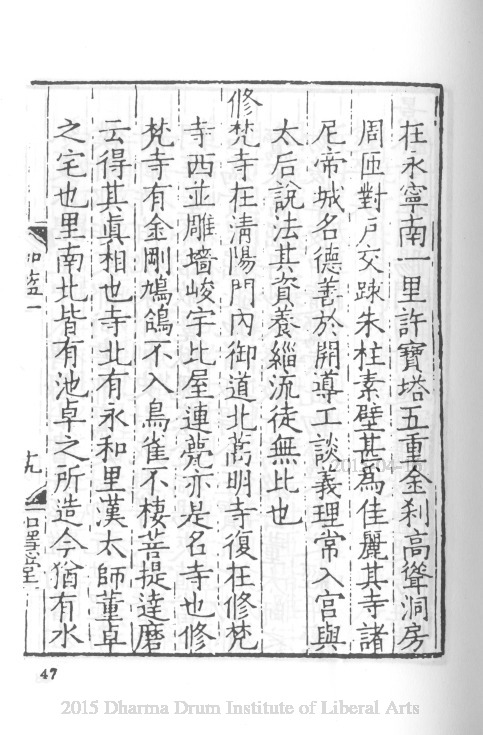 在永寧南一里許寶塔五重金刹高聳洞房
周匝對戶交踈朱柱素壁甚爲佳麗其寺諸
尼帝城名德善於開導工談義理常入宮與
太后說法其資養緇流徒無比也
修梵寺在淸陽門內御道北嵩明寺復在修梵
寺西並雕墻峻宇比屋連甍亦是名寺也修
梵寺有金剛鳩鴿不入鳥雀不棲菩提達磨
云得其眞相也寺北有永和里漢太師董卓
之宅也里南北皆有池卓之所造今猶有水
伽藍一
十九
如隱堂
47
2015 Dharma Drum Institute of Liberal Arts